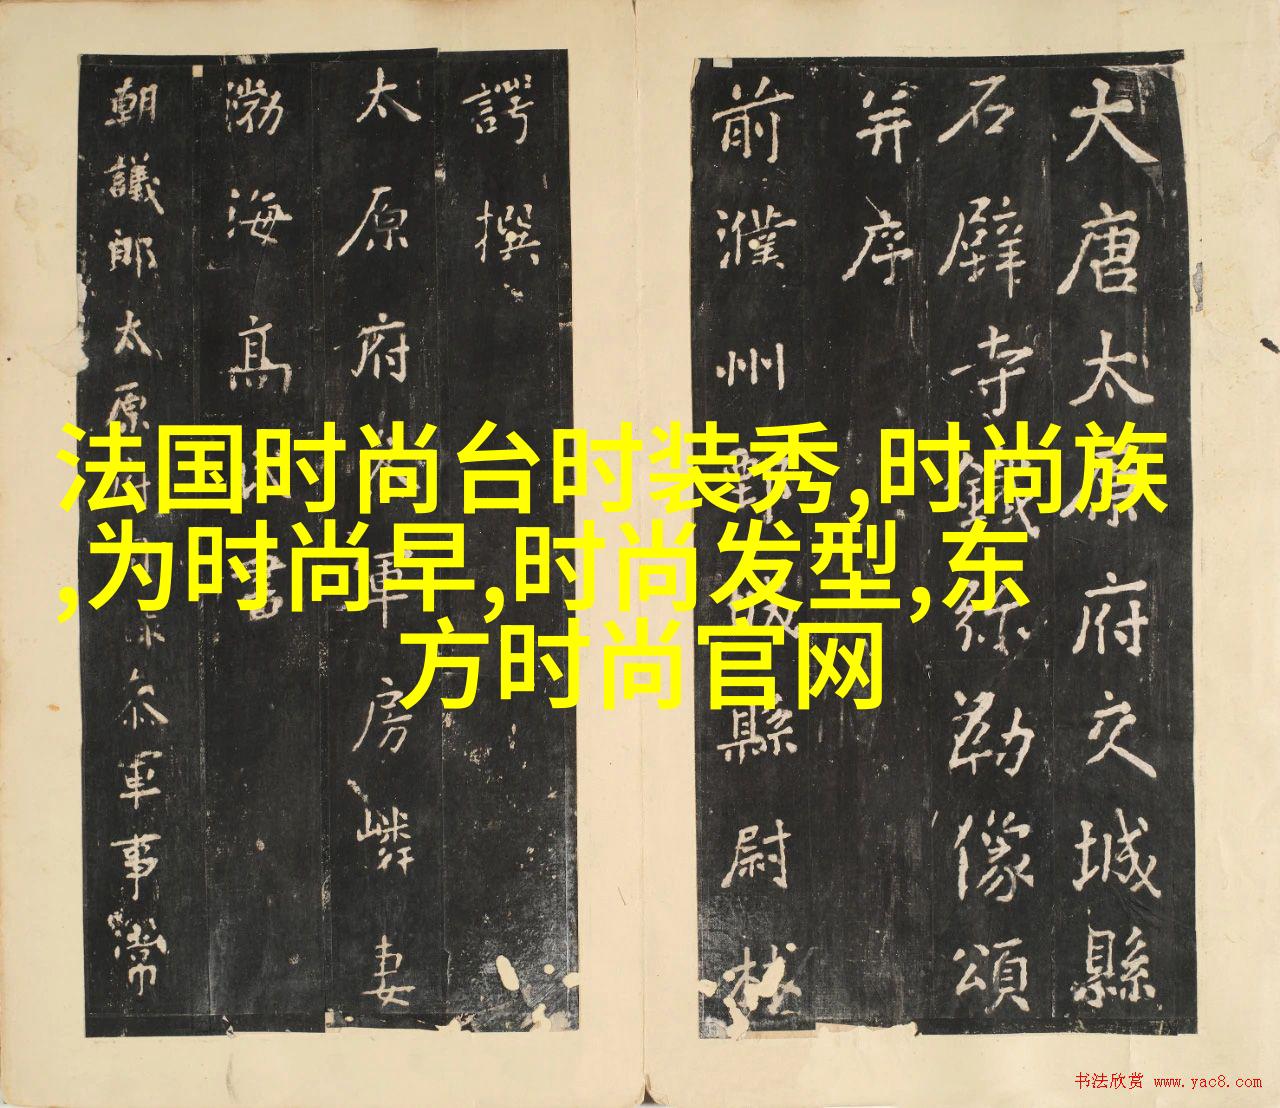 大唐太原府交城縣
石壁寺鐵彌勒像頌
并序
前濮州鄄城縣尉林
諤撰
太原府
軍房嶙妻
渤海高
書
朝議郎太原府
叅軍事常
法国时尚台时装秀,时尚族
,为时尚早,时尚发型,东
方时尚官网
书法欣赏 www.yac8.com